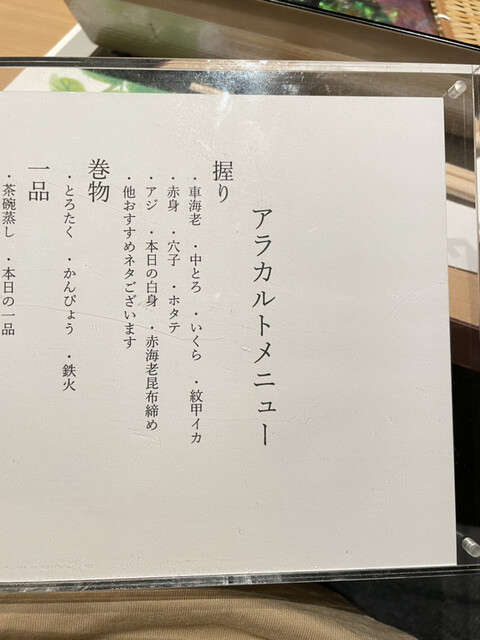 アラカルトメニュー
握り
・車海老 ・中とろ ・いくら ・紋甲イカ
・赤身 ・穴子 ・ホタテ
・アジ ・本日の白身 ・赤海老昆布締め
・他おすすめネタございます
巻物
・とろたく ・かんぴょう ・鉄火
一品
・茶碗蒸し ・本日の一品